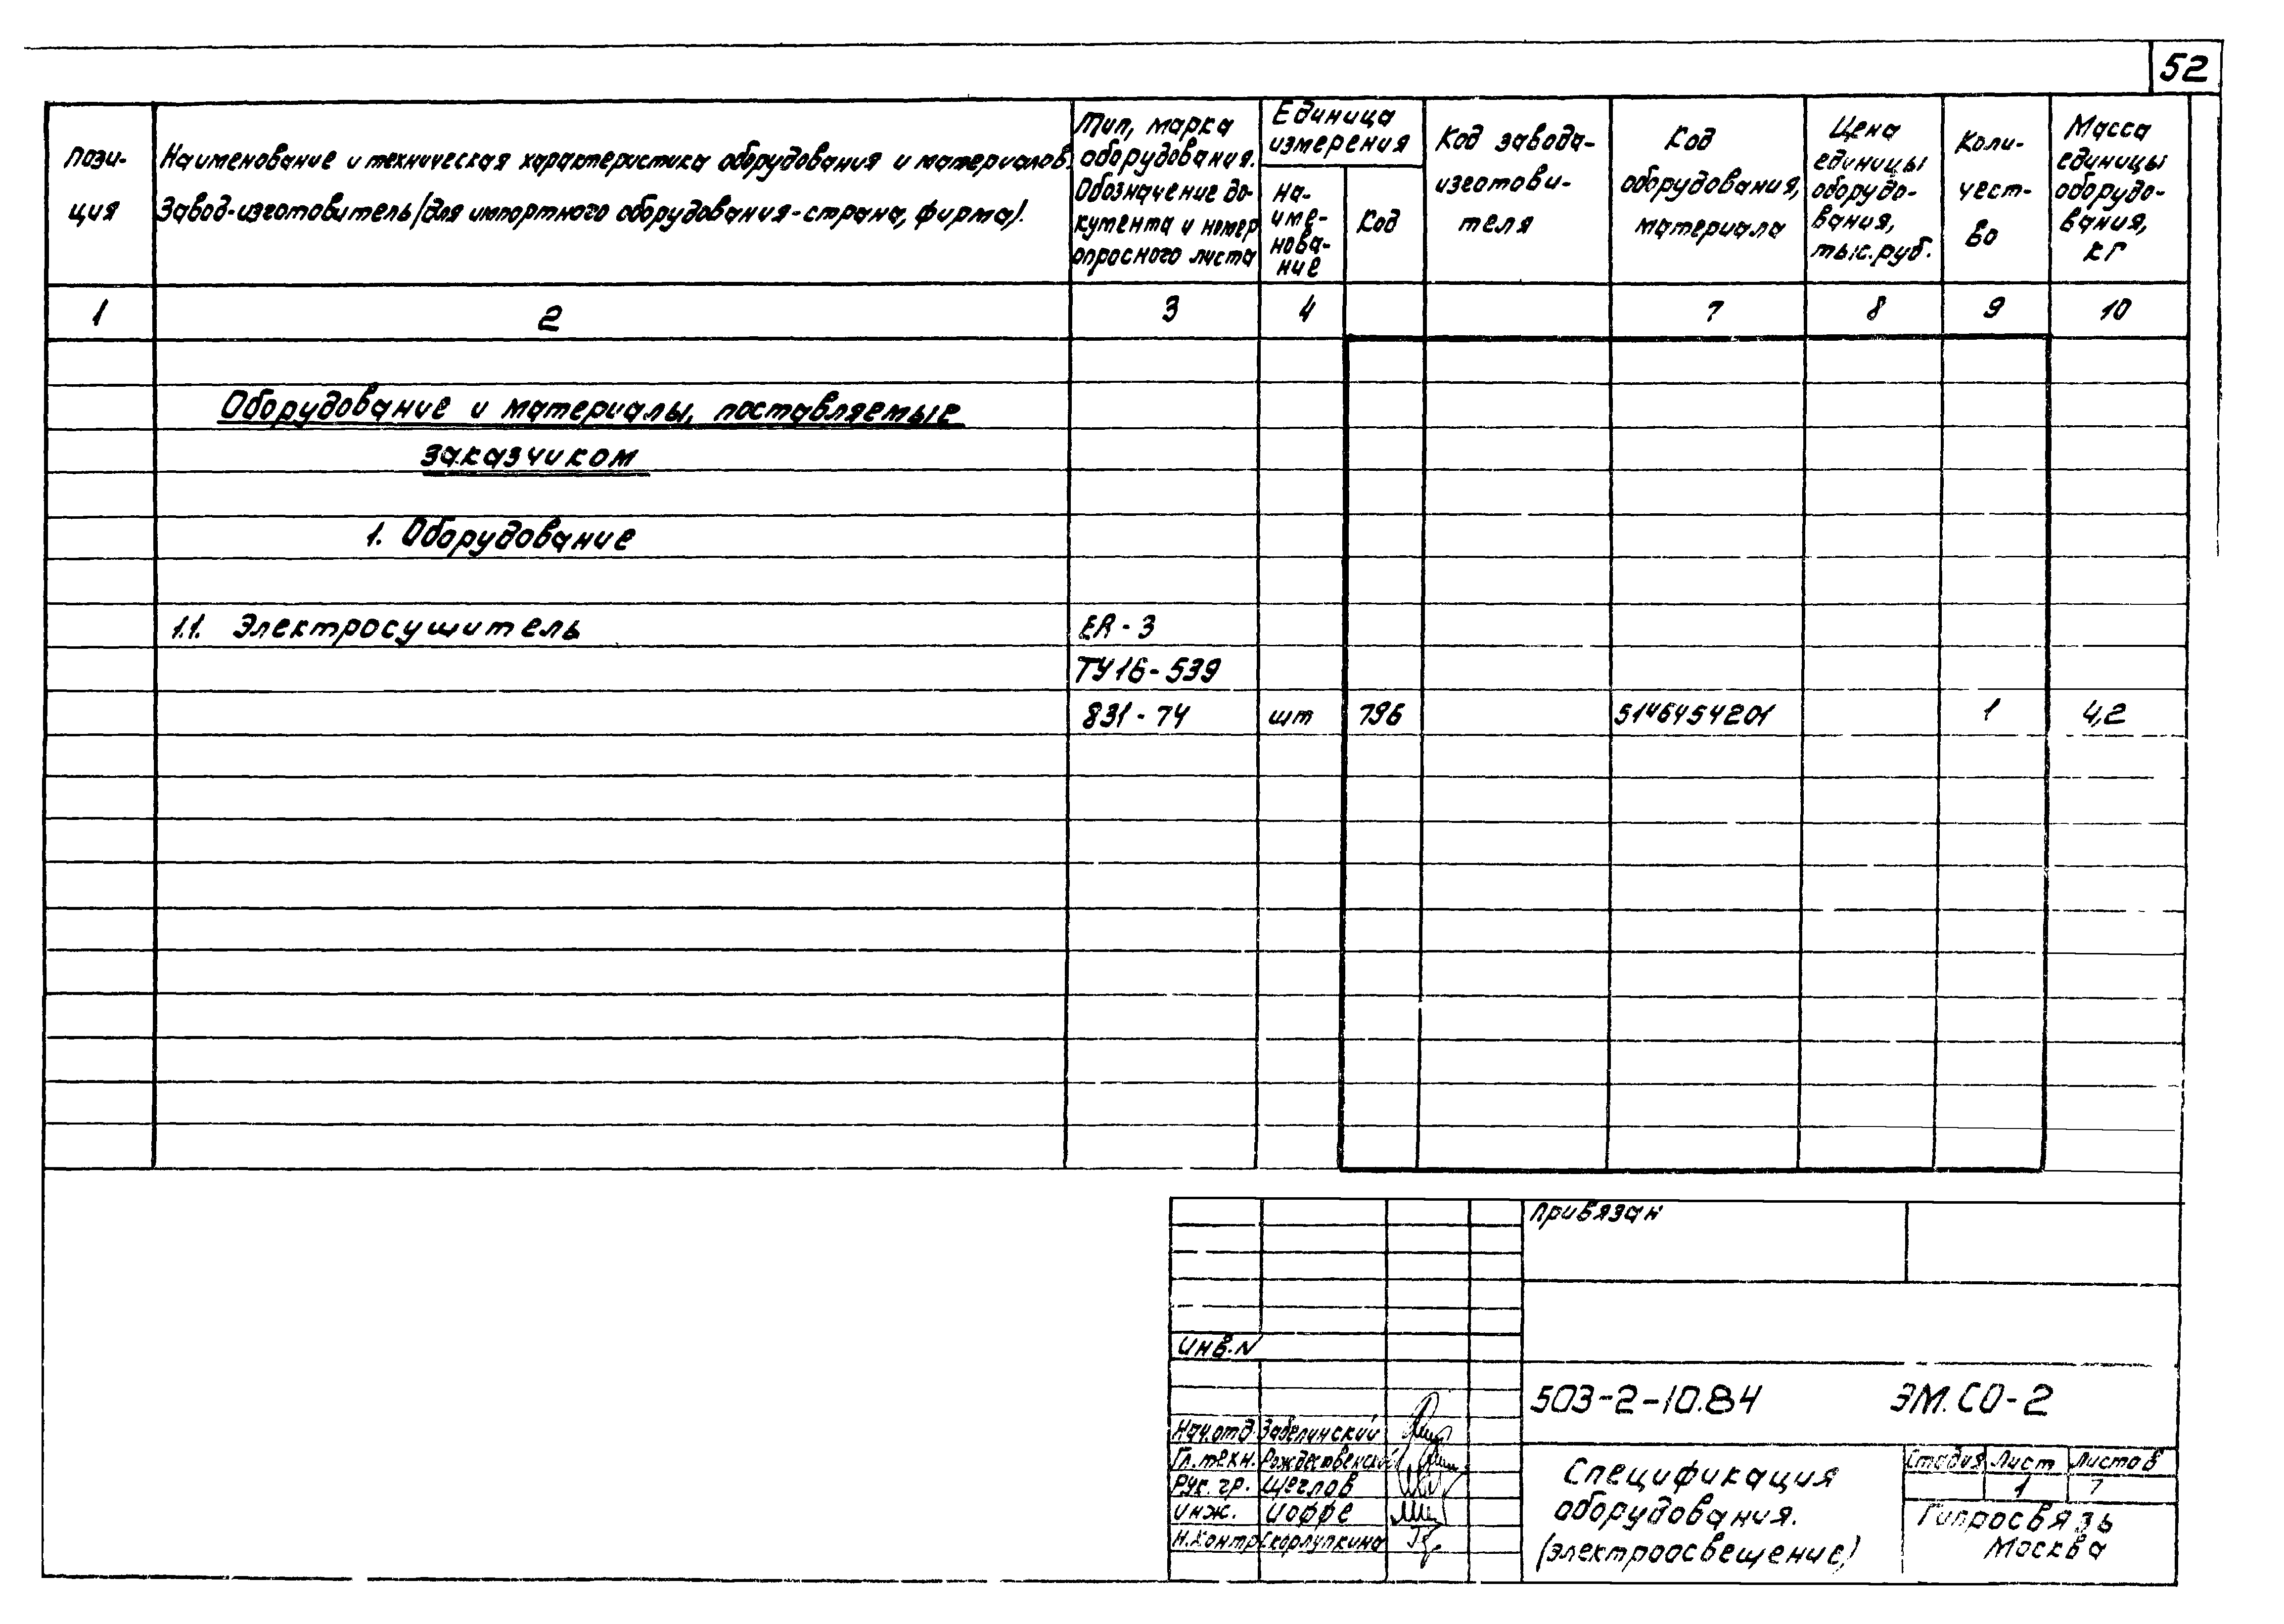 52
Пози-
ция
Наименование и техническая характеристика оборудования и материалов.
Завод-изготовитель/для импортного оборудования-страна, фирма/.
Тип, марка
оборудования.
Обозначение до-
кумента и номер
опросного листа
Единица
измерения
на-
име-
нова-
ние
Код
Код завода-
изготови-
теля
Код
оборудования,
материала
Цена
единицы
оборудо-
вания,
тыс.руб.
Коли-
чест-
во
Масса
единицы
оборудо-
вания,
кг
1 2 3 4 7 8 9 10
Оборудование и материалы, поставляемые
заказчиком
1. Оборудование
1.1. Электросушитель ЕА-3
ТУ16-539
831-74 шт 796 5146454201 1 4,2
Привязан
Инв.N
503-2-10.84 ЭМ.СО-2
Нач.отд. Забелинский
Гл.техн. Рождественский
Рук. гр. Щеглов
Инж. Иоффе
Н.контр Скорлупкина
Спецификация
оборудования.
(электроосвещение)
Стадия Лист Листов
1 7
Гипросвязь
Москва